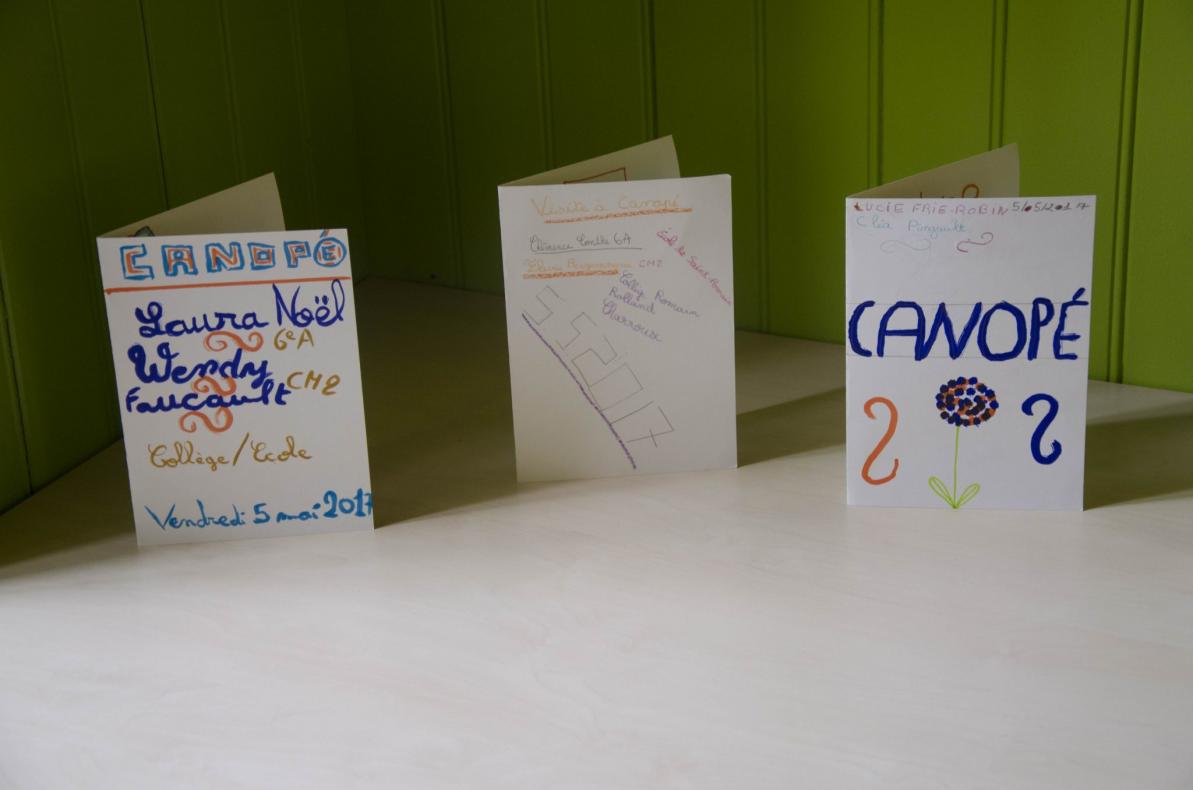 CANOPÉ
Laura Noël
6eA
Wendy
Faucault CM2
Collège/Ecole
Vendredi 5 mai 2017
Visite à Canopé
6A
CM2
École le Saint-Romain
Collège Romain
Rolland
Charroux
LUCIE FRIE-ROBIN 5/05/2017
Cléa Pingault
CANOPÉ